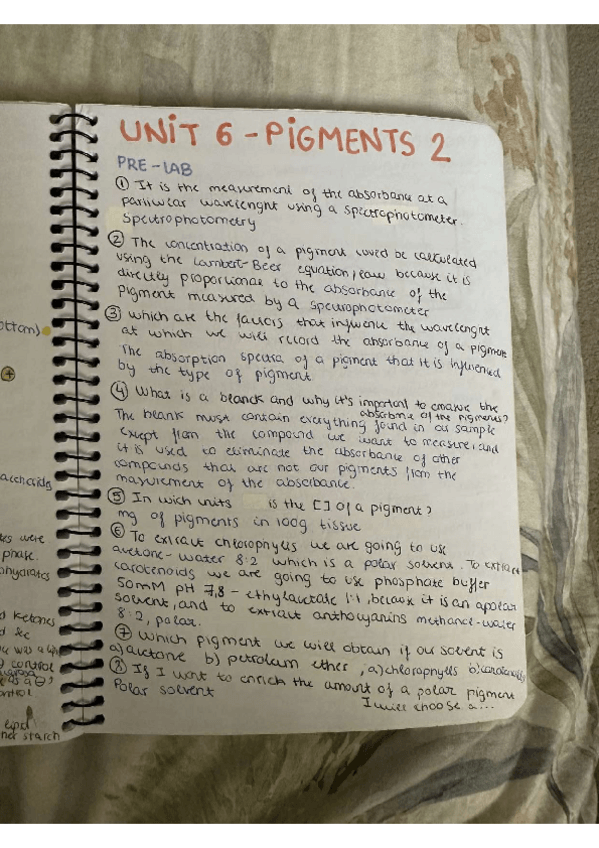 ottom)
accharids
tes were
phase.
ohydrates
d Ketones
control
ontrol
lipid
nd starch
UNIT 6 - PIGMENTS 2
PRE-LAB
① It is the measurement of the absorbane at a
particular wavelenght using a spectrophotometer.
Spectrophotometry
② The concentration of a pigment coved be calculated
using the Lambert-Beer equation/law because it is
directly proporional to the absorbance of the
pigment measured by a spectrophotometer
③ which are the factors that influence the wavelenght
at which we will record the absorbance of a pigment
The absorption spectra of a pigment that it is influenced
by the type of pigment.
④ What is a blanck and why it's important to
absorbance of the pigments?
The blank must contain everything found in our sample
except from the compound we want to measure, and
it is used to eliminate the absorbance of other
compounds that are not our pigments from the
of the absorbance.
⑤ In wich units is the [] of a pigment?
mg of pigments in 100g tissue
⑥ To extract chlorophylls we are going to use
acetone-water 8:2 which is a polar solvent. To extract
carotenoids we are going to use phosphate buffer
50mM pH 7,8 - ethylacetate 1:1, because it is an apolar
solvent, and to extract anthocyanins methanol-water
8:2, polar.
⑦ Which pigment we will obtain if our solvent is
a) acetone b) petroleum ether, a) chlorophylls b) carotenoids
⑧ If I want to enrich the amount of a polar pigment
I will choose a...
Polar solvent